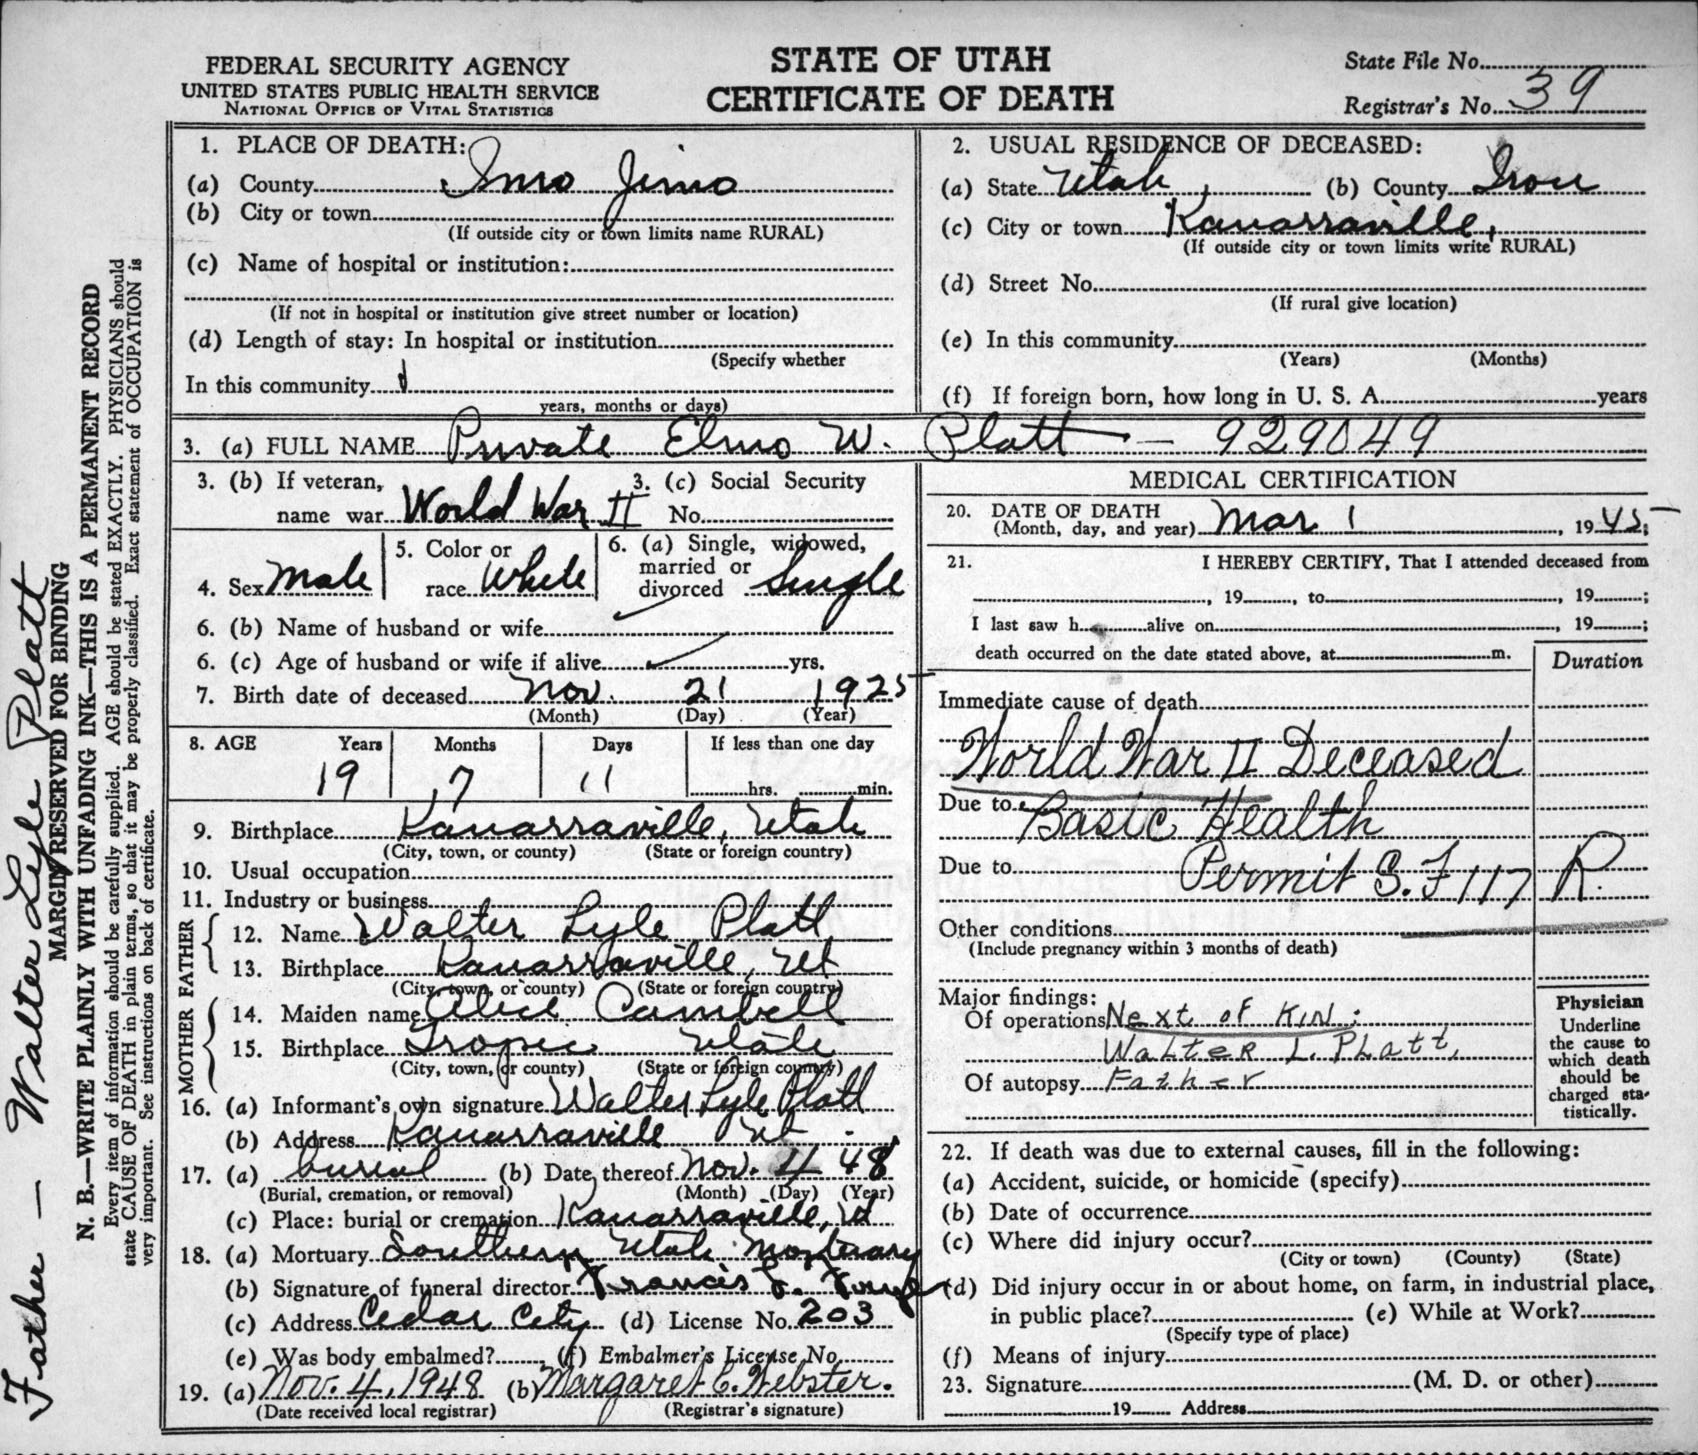 FEDERAL SECURITY AGENCY
UNITED STATES PUBLIC HEALTH SERVICE
NATIONAL OFFICE OF VITAL STATISTICS
STATE OF UTAH
CERTIFICATE OF DEATH
State File No.
Registrar's No. 39
1. PLACE OF DEATH:
(a) County Iwo Jimo
(b) City or town
(If outside city or town limits name RURAL)
(c) Name of hospital or institution:
(If not in hospital or institution give street number or location)
(d) Length of stay: In hospital or institution
(Specify whether
In this community
years, months or days)
2. USUAL RESIDENCE OF DECEASED:
(a) State Utah, (b) County Iron
(c) City or town Kanarraville,
(If outside city or town limits write RURAL)
(d) Street No.
(If rural give location)
(e) In this community
(Years) (Months)
(f) If foreign born, how long in U. S. A. years
3. (a) FULL NAME Private Elmo W. Platt — 929049
3. (b) If veteran, 3. (c) Social Security
name war World War II No.
4. Sex Male
5. Color or
race White
6. (a) Single, widowed,
married or
divorced Single
6. (b) Name of husband or wife
6. (c) Age of husband or wife if alive yrs.
7. Birth date of deceased Nov. 21 1925
(Month) (Day) (Year)
8. AGE Years Months Days If less than one day
19 7 11 hrs. min.
9. Birthplace Kanarraville, Utah
(City, town, or county) (State or foreign country)
10. Usual occupation
11. Industry or business
FATHER
12. Name Walter Lyle Platt
13. Birthplace Kanarraville, Ut
(City, town, or county) (State or foreign country)
MOTHER
14. Maiden name Alice Cambell
15. Birthplace Tropic Utah
(City, town, or county) (State or foreign country)
16. (a) Informant's own signature Walter Lyle Platt
(b) Address Kanarraville Ut.
17. (a) burial (b) Date thereof Nov. 4 48
(Burial, cremation, or removal) (Month) (Day) (Year)
(c) Place: burial or cremation Kanarraville, Ut
18. (a) Mortuary Southern Utah Mortuary
(b) Signature of funeral director Francis
(c) Address Cedar City (d) License No. 203
(e) Was body embalmed? (f) Embalmer's License No.
19. (a) Nov. 4, 1948 (b) Margaret C. Webster.
(Date received local registrar) (Registrar's signature)
MEDICAL CERTIFICATION
20. DATE OF DEATH
(Month, day, and year) Mar 1, 1945;
21. I HEREBY CERTIFY, That I attended deceased from
, 19 , to , 19 ;
I last saw h alive on , 19 ;
death occurred on the date stated above, at m.
Duration
Immediate cause of death
World War II Deceased
Due to Basic Health
Due to Permit S.F 117 R.
Other conditions
(Include pregnancy within 3 months of death)
Major findings:
Of operations Next of Kin:
Walter L. Platt,
Of autopsy Father
Physician
Underline
the cause to
which death
should be
charged sta-
tistically.
22. If death was due to external causes, fill in the following:
(a) Accident, suicide, or homicide (specify)
(b) Date of occurrence
(c) Where did injury occur?
(City or town) (County) (State)
(d) Did injury occur in or about home, on farm, in industrial place,
in public place? (e) While at Work?
(Specify type of place)
(f) Means of injury
23. Signature (M. D. or other)
19 Address
Father — Walter Lyle Platt
MARGIN RESERVED FOR BINDING
N. B.—WRITE PLAINLY WITH UNFADING INK—THIS IS A PERMANENT RECORD
Every item of information should be carefully supplied. AGE should be stated EXACTLY. PHYSICIANS should
state CAUSE OF DEATH in plain terms, so that it may be properly classified. Exact statement of OCCUPATION is
very important. See instructions on back of certificate.